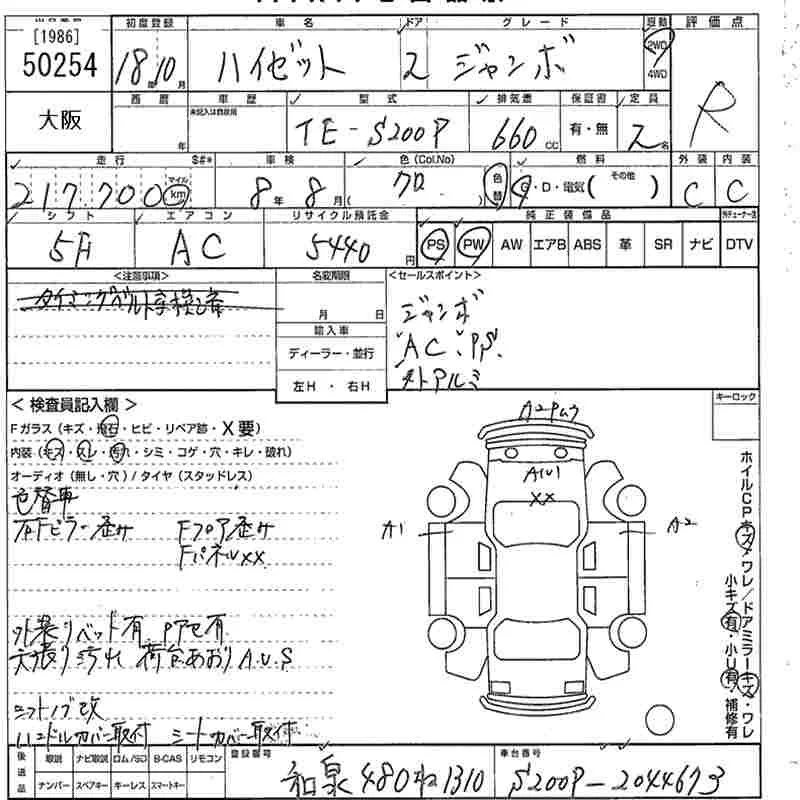 初度登録 車名 ドア グレード 駆動 評価点
[1986]
50254 18年10月 ハイゼット 2 ジャンボ 2WD 4WD R
大阪
西暦 車歴 型式 排気量 保証書 定員
年 未記入は自家用 TE-S200P 660 CC 有・無 2名
走行 S#* 車検 色(Col.No) 燃料 外装 内装
217,700 マイル km 8年 8月 クロ ( ) 色替 G・D・電気( その他 ) C C
シフト エアコン リサイクル預託金 純正装備品
5F AC 5440円 PS PW AW エアB ABS 革 SR ナビ DTV
<注意事項> 名変期限 <セールスポイント>
月 日 ジャンボ
輸入車 AC、PS、
ディーラー・並行
左H・右H 社外アルミ
<検査員記入欄> キーロック
Fガラス(キズ・飛石・ヒビ・リペア跡・X要) A2Pムラ
内装(キズ・スレ・汚れ・シミ・コゲ・穴・キレ・破れ)
オーディオ(無し・穴)/タイヤ(スタッドレス) A1(U)
色替車 XX
右Fピラー歪ミ Fフロア歪ミ A1 A2
FパネルXX
ホイルCPキズ・ワレ/ドアミラーキズ・ワレ
小キズ有・小U有・補修有
外装リベット有 Pアセ有
天張リ汚れ 荷台あおりA.U.S
シフトノブ改
ハンドルカバー取付 シートカバー取付
後送品 取説 ナビ取説 ロム/SD B-CAS リモコン 登録番号 車台番号
ナンバー スペアキー キーレス スマートキー 和泉480ね1310 S200P-2044673